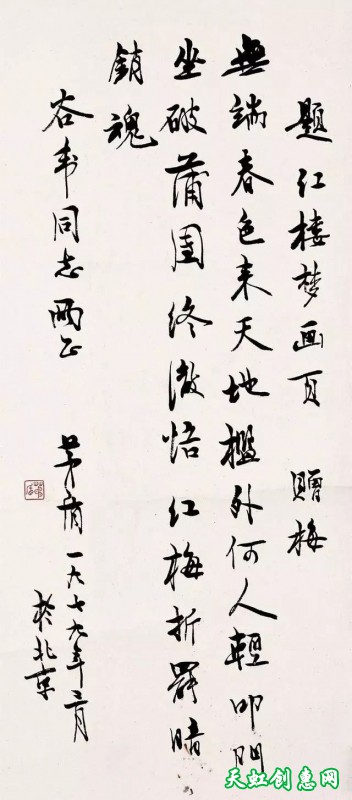 题红楼梦画页 赠梅
無端春色来天地檻外何人輕叩門
坐破蒲团终澈悟红梅折罢暗
销魂
谷韦同志两正
茅盾一九七九年二月
於北京
天虹创惠网